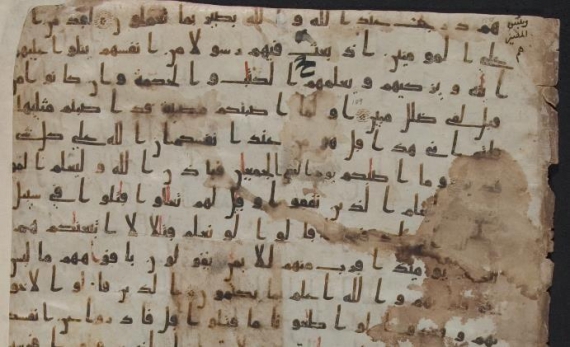 هم درجت عند الله و الله بصير بما يعملون لقد من ا
لله على المومنين اذ بعث فيهم رسولا من انفسهم يتلوا عليهم
ايته و يزكيهم و يعلمهم الكتب و الحكمة و ان كانوا من
قبل لفى ضلل مبين او لما اصبتكم مصيبة قد اصبتم مثليها
قلتم انى هذا قل هو من عند انفسكم ان الله على كل
و ما اصبكم يوم التقى الجمعن فباذن الله و ليعلم المو
و ليعلم الذين نفقوا و قيل لهم تعالوا قتلوا فى سبيل
قالوا لو نعلم قتالا لاتبعنكم هم
يومئذ اقرب منهم للايمن يقولون بافوههم ما ليس
قلوبهم و الله اعلم بما يكتمون الذين قالوا لاخو
نهم و قعدوا لو اطاعونا ما قتلوا قل فادروا عن انفسكم